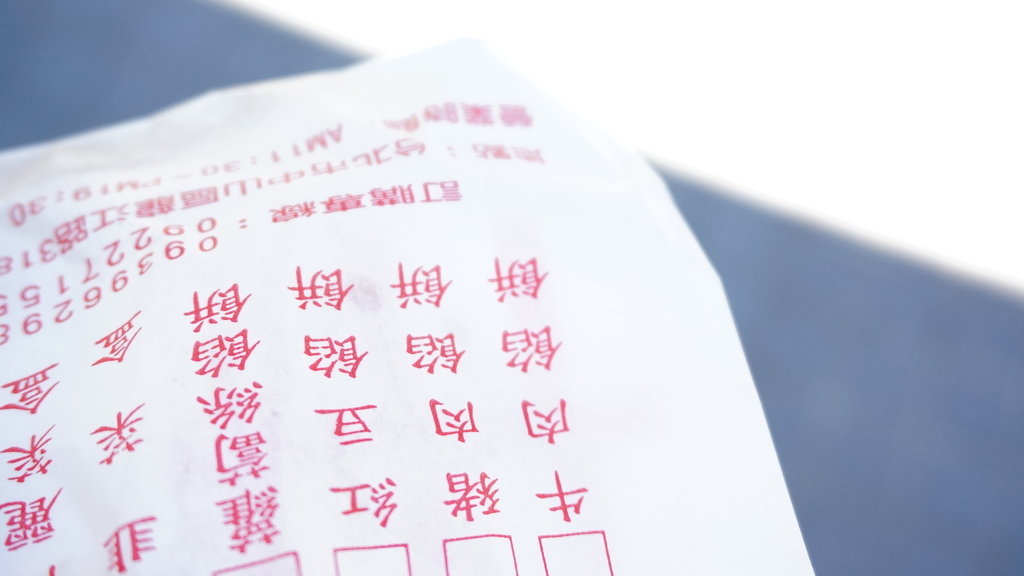 牛肉餡餅
豬肉餡餅
紅豆餡餅
蘿蔔絲餡餅
韭菜盒
麗菜盒
訂購專線：
地點：台北市中山區龍江路318
營業時間 AM11:30-PM19:30